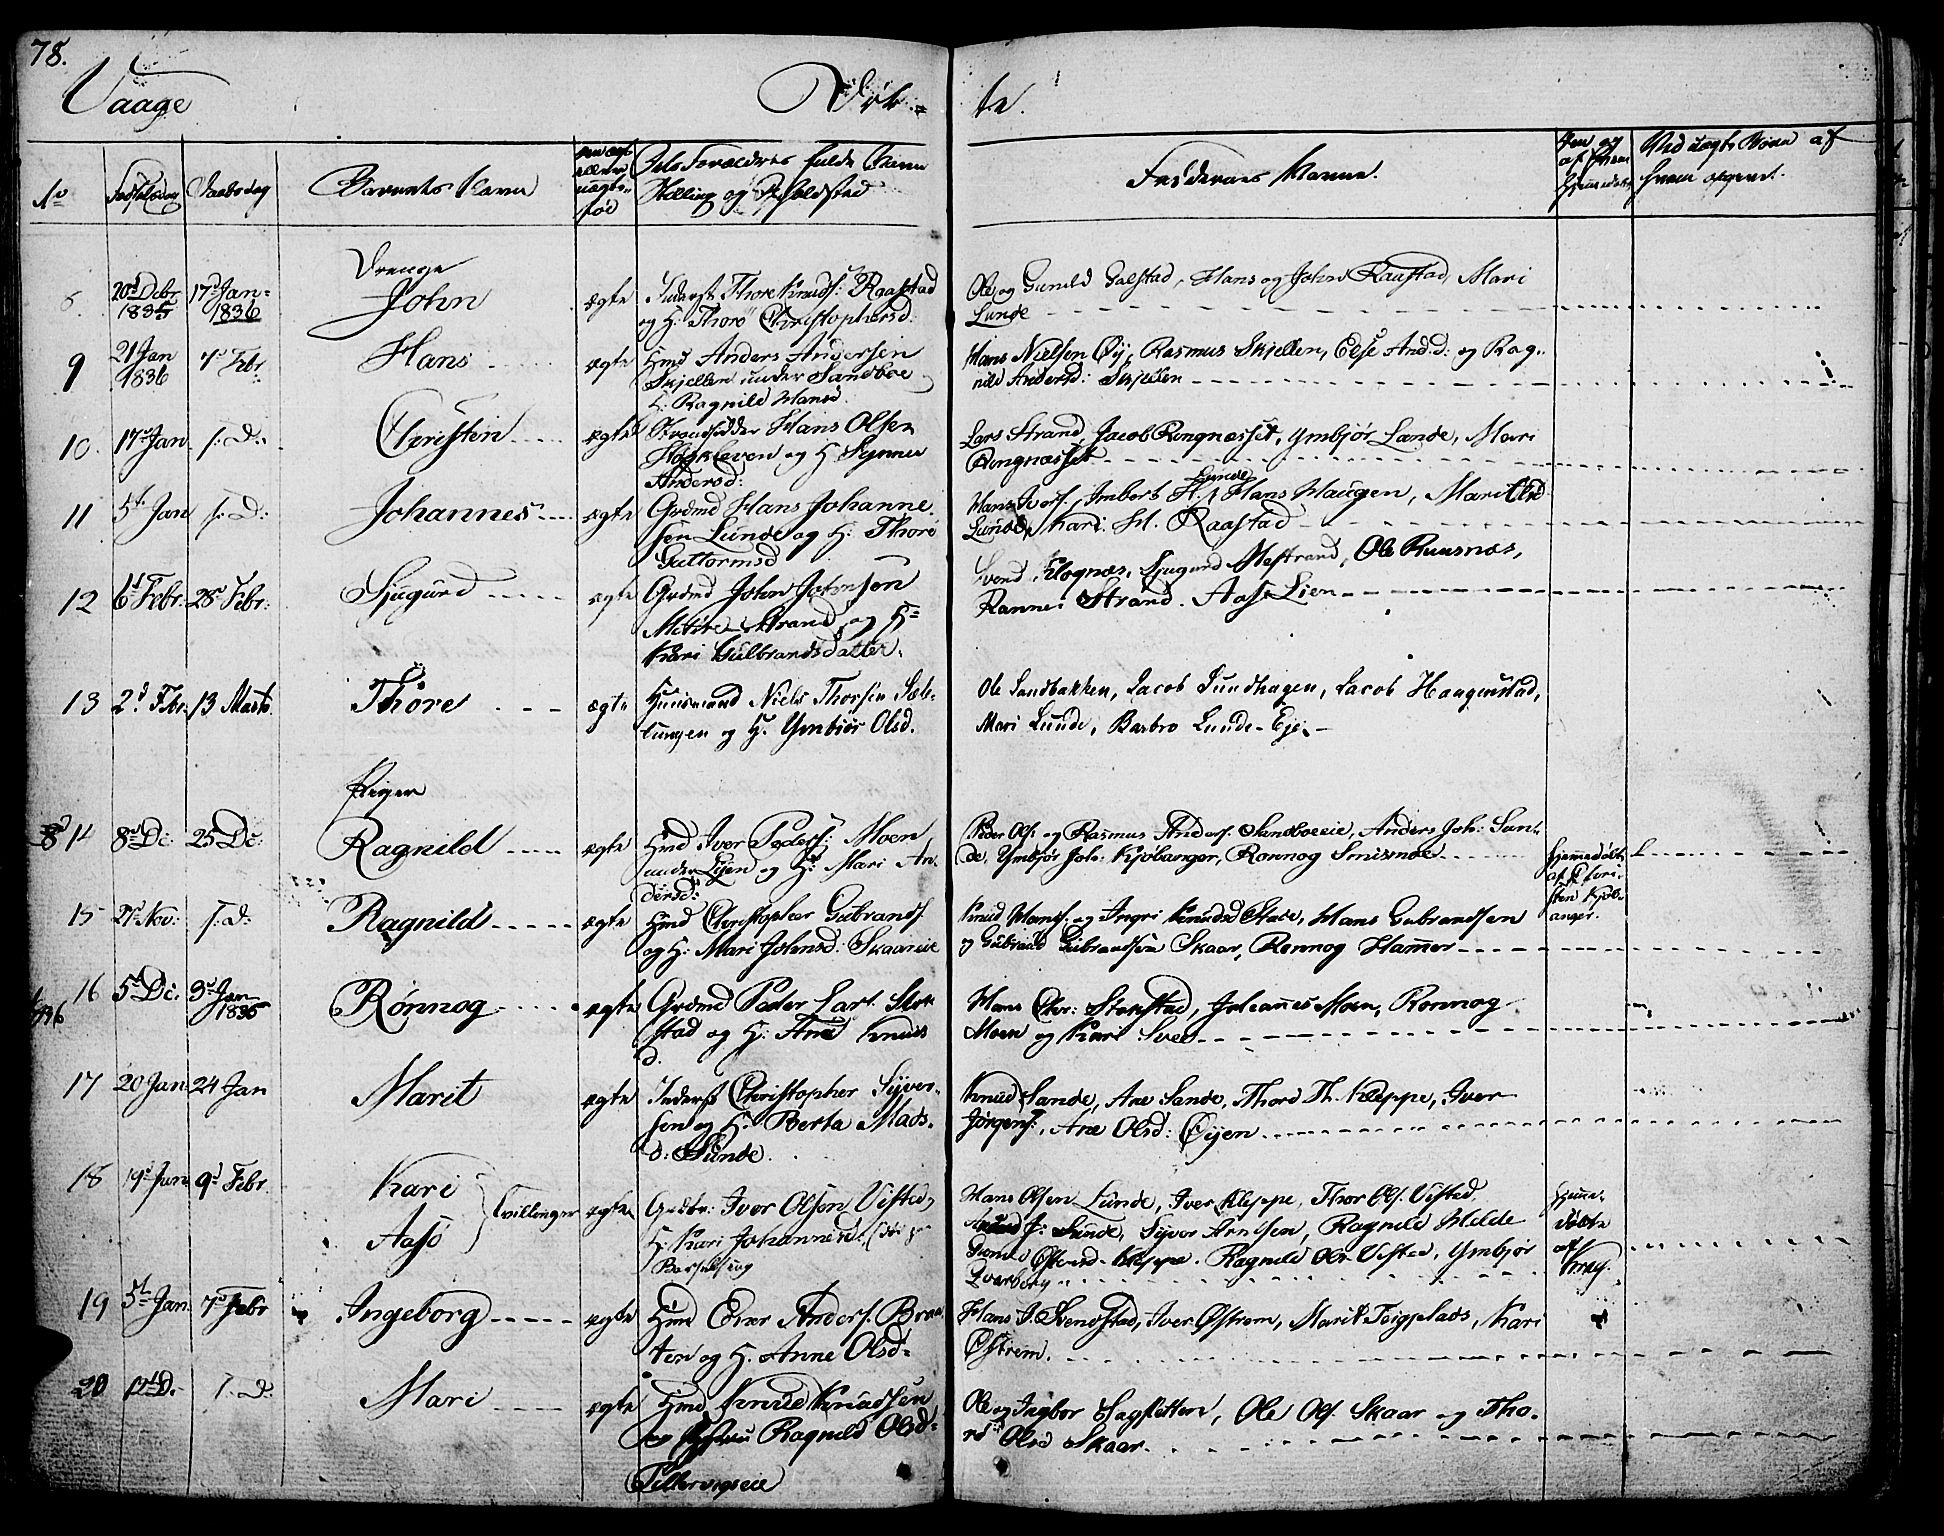 78.
Vaage Døb- te.
No Fødselsdag Daabsdag Barnets Navn om ægte eller uægte fød Dets Forældres fulde Navn Stilling og Opholdsted Faddernes Navne. Om og af hvem hjemmedøbt Ved uægte Børn af hvem angivet.
Drenge
8. 20d Debr 1835 17d Jan 1836 John ægte Inderst Thore Knuds: Raastad og H: Thorø Christophersd: Ole og Gunild Galstad, Hans og John Raastad, Mari Lunde
9 21 Jan 1836 7d Febr Hans ægte Hmd Anders Andersen Skjellen under Sandboe H. Ragnild Hansd. Hans Nielsen Øy, Rasmus Skjellen, Else And.d: og Ragnild Andersd: Skjellen
10. 17d Jan s. D: Christen ægte Strandsidder Hans Olsen og H. Synnev Andersd: Lars Strand, Jacob Ringnæsset, Ymbjør Lande, Mari Ringnæsset
11 5t Jan s. D: Johannes ægte Grdmd Hans Johannesen Lunde og H: Thorø Guttormsd Hans Ivers, Imbert H. Lunde Hans Haugen, Mari Olsd Lunde, Kari H. Raastad
12 6t Febr. 28d Febr: Sjugurd ægte Grdmd John Johnsen Strand og H: Kari Gulbrandsdatter. Svend Klognæs, Sjugurd Mestrand, Ole Ruusnæs, Rannei Strand. Aase Lien
13 2d Febr. 13 Marts. Thore ægte Huusmand Niels Thorsen og H. Ymbiør Olsd. Ole Sandbakken, Jacob Sundhagen, Jacob Haagenstad, Mari Lunde, Barbro Lunde-Eje.
Piger
14 8d Dc: 25 Dc: Ragnild ægte Hmd Iver Peders: Moen under Øyen og H: Mari Andersd: Peder Ols: og Rasmus Anders. Sandboeeie, Anders Joh: Sande, Ymbjør Joh: Kjøbanger, Ronnog Smisnæ hjemmedøbt af Christen Kjøbanger.
15 27 Nov: s. d: Ragnild ægte Hmd Christopher Gubrands. og H: Mari Johnsd: Skaareie Knud Hans. og Ingri Knudsd Stade, Hans Gubrandsen og Gubrand Gubrandsen Skaar, Rennog Hammer
16 5d Dc. 3d Jan 1836 Rønnog ægte Grdmd Peder Lars. Stokstad og H: Ane Knudsd. Hans Chr: Stokstad, Johannes Moen, Ronnog Moen og Kari Svee
17 20 Jan: 24 Jan Marit ægte Inderst Christopher Syversen og H. Berta Madsd: Sunde. Knud Sande, Ane Sande, Thord Th. Kleppe, Iver Jørgens:, Ane Olsd: Øyen
18 19d Jan 9d Febr. Kari Aasø tvillinger ægte Grdbr: Iver Olsen Visted, H. Kari Johannesd. Barselseng Hans Olsen Lunde, Iver Kleppe, Thor Ols. Visted, Sunde, Syver Arnesen, Ragnild Melde Kleppe. Ragnild Ols Visted, Ymbjør Qvarberg hjemmedøbte af Krag.
19 5t Jan. 7d Febr Ingeborg ægte Hmd Ener Anders. Braaten og H. Anne Olsd: Hans J. Svendstad, Iver Østrem, Marit Teigplads, Kari Østrem.
20 12d D. s. D. Mari ægte Hmd Knud Knudsen og Hustru Ragnild Olsd: Ole og Ingbor Sagfletten, Ole Ols. Skaar og Thorø Olsd Skaar.